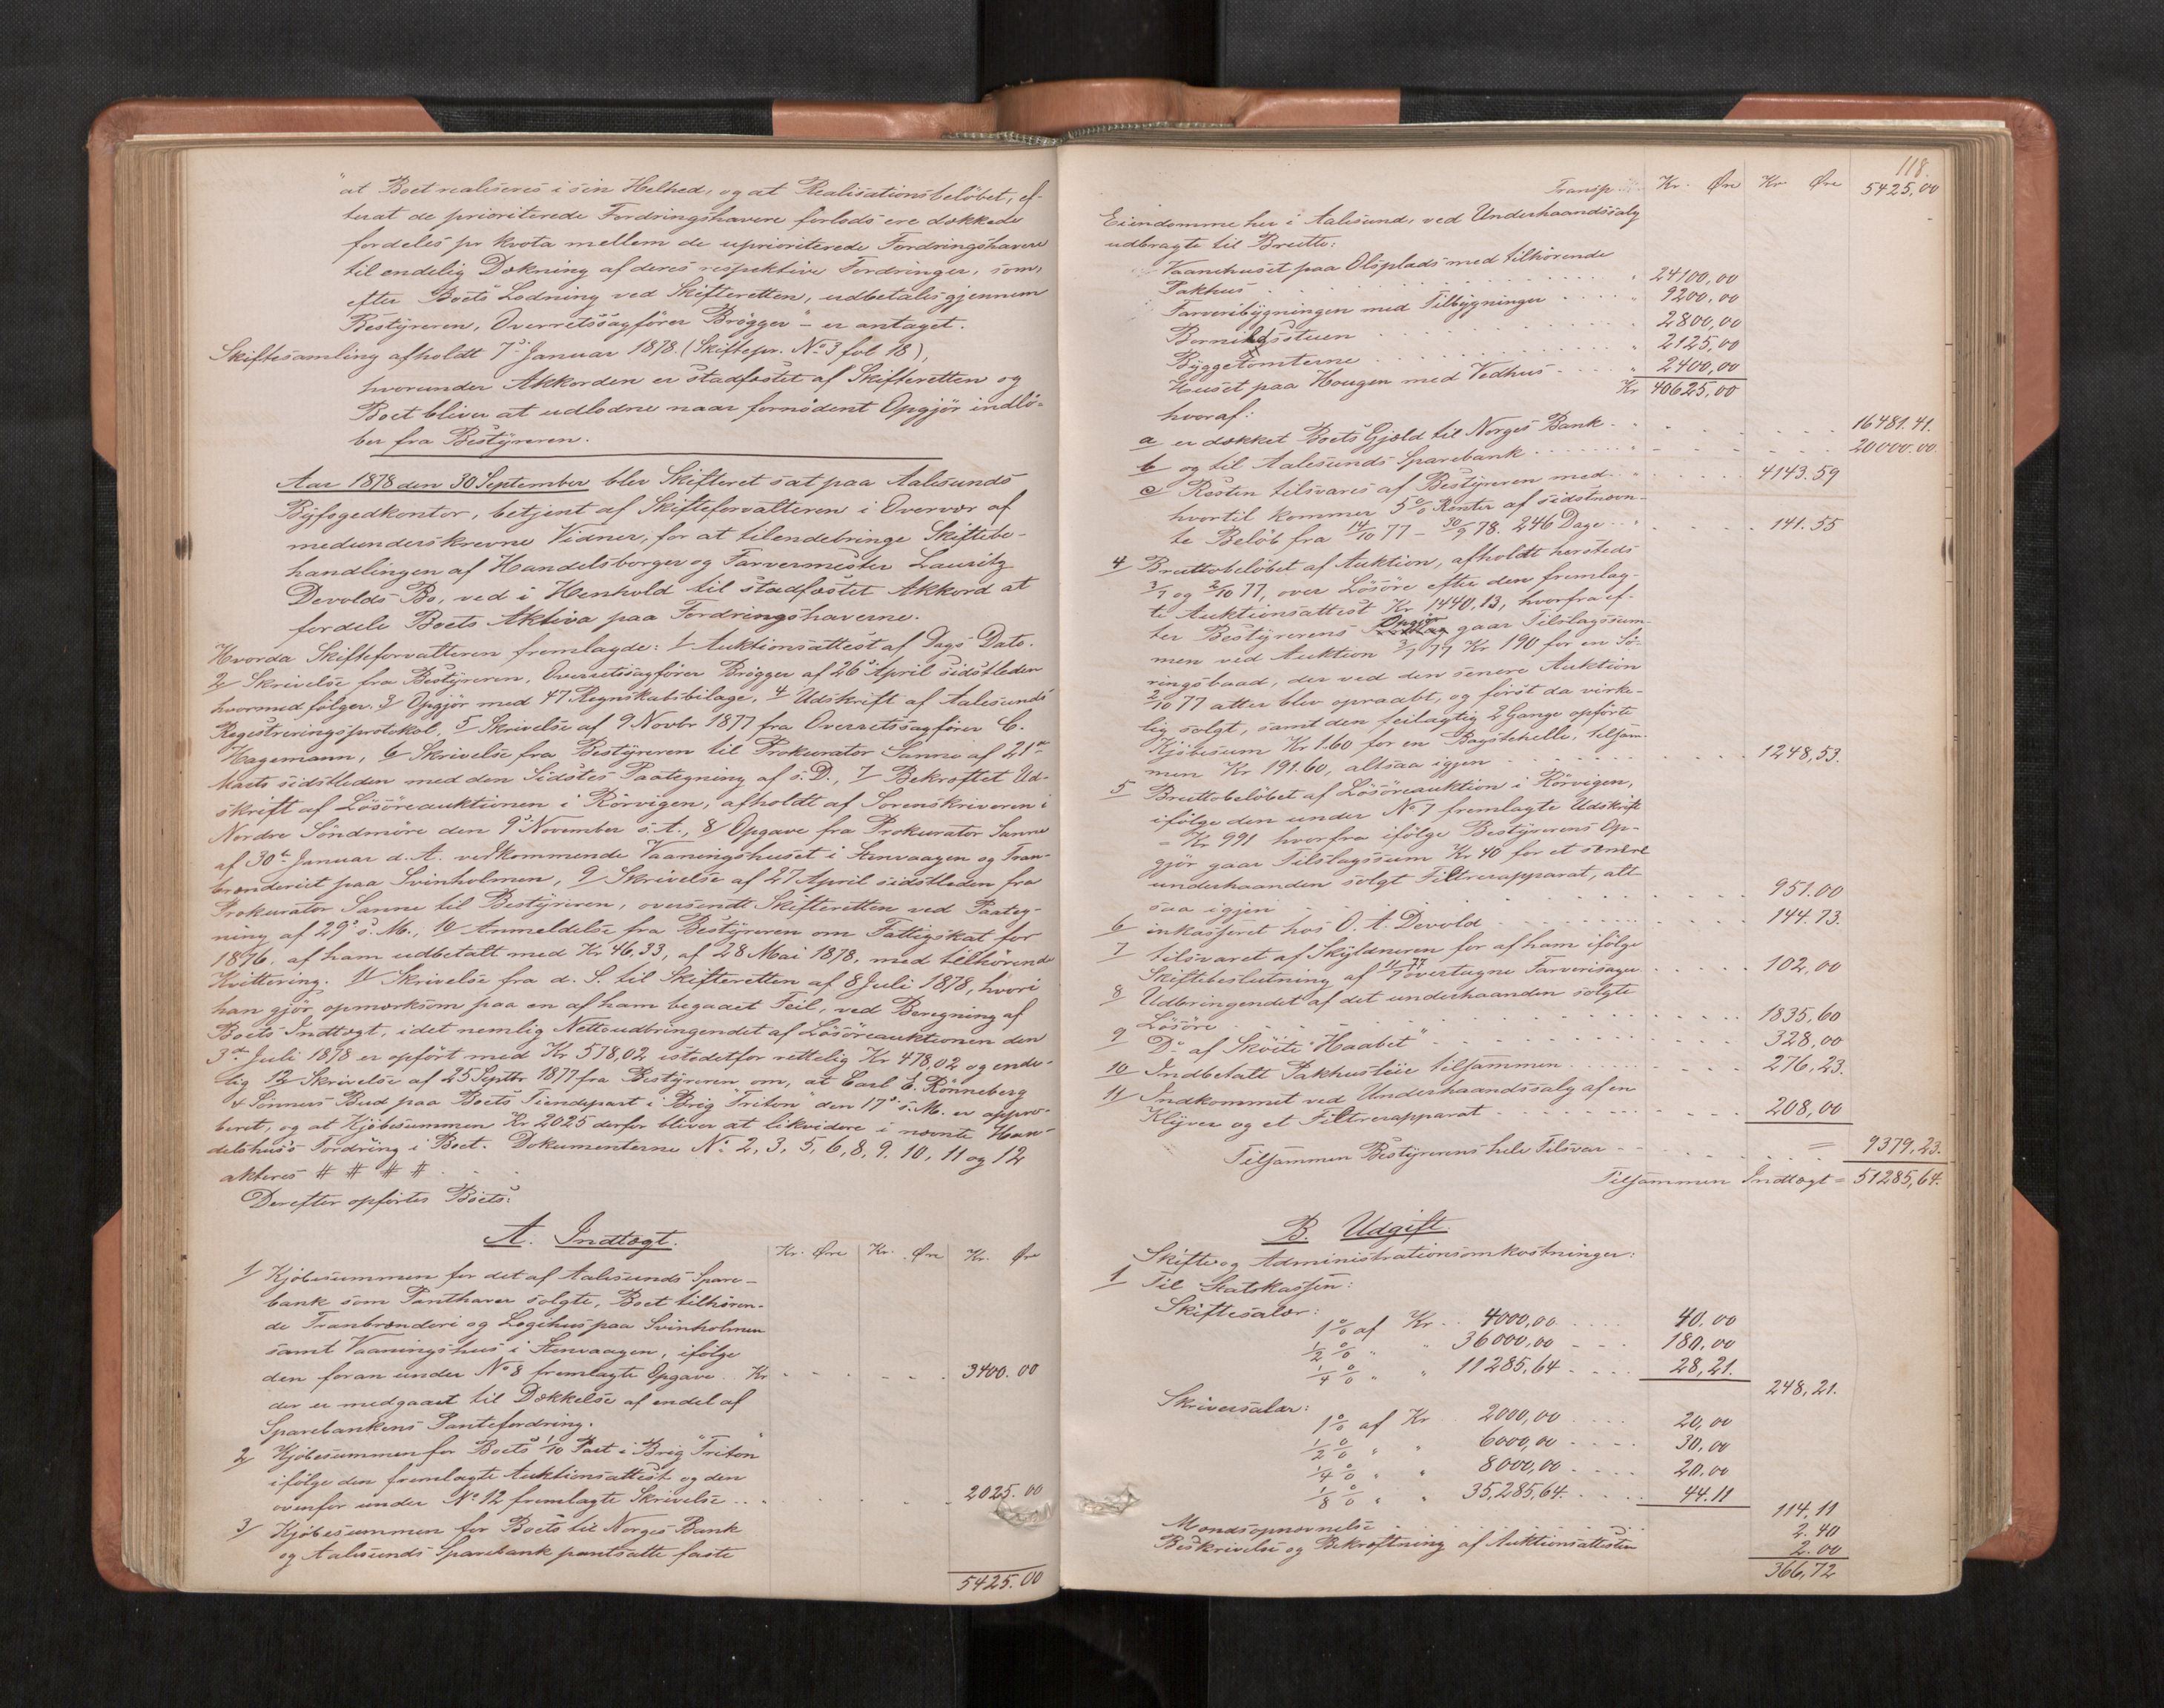 "at Boet realiseres i sin Helhed, og at Realisationsbeløbet, ef-
terat de prioriterede Fordringshavere forlods ere dækkede
fordeles pr Kvota mellem de uprioriterede Fordringshavere
til endelig Dækning af deres respektive Fordringer, som,
efter Boets Lodning ved Skifteretten, udbetales gjennem
Bestyreren, Overretssagfører Brögger" – er antaget.
Skiftesamling afholdt 7de Januar 1878. (Skiftepr. No 3 fol 18),
hvorunder Akkorden er stadfæstet af Skifteretten og
Boet bliver at udlodne naar fornødent Opgjör indlö-
ber fra Bestyreren.
Aar 1878 den 30 September blev Skifteret sat paa Aalesunds
Byfogedkontor, betjent af Skifteforvalteren i Overvær af
medunderskrevne Vidner, for at tilendebringe Skiftebe-
handlingen af Handelsborger og Farvermester Lauritz
Devolds Bo, ved i Henhold til stadfæstet Akkord at
fordele Boets Aktiva paa Fordringshaverne.
Hvorda Skifteforvalteren fremlagde: 1/ Auktionsattest af Dags Dato.
2/ Skrivelse fra Bestyreren, Overretssagfører Brögger af 26de April sidstleden
hvormed fölger. 3/ Opgjör med 47 Regnskabsbilage, 4/ Udskrift af Aalesunds
Registreringsprotokol, 5/ Skrivelse af 9 Novbr 1877 fra Overretssagfører C.
Hagemann, 6/ Skrivelse fra Bestyreren til Prokurator Sanne af 21de
Marts sidstleden med den Sidstes Paategning af s. D., 7/ Bekræftet Ud-
skrift af Lösöreauktionen i Rörvigen, afholdt af Sorenskriveren i
Nordre Söndmöre den 9de November s. A., 8/ Opgave fra Prokurator Sanne
af 30te Januar d. A. vedkommende Vaaningshuset i Stenvaagen og Tran-
brænderiet paa Svinholmen, 9/ Skrivelse af 27 April sidstleden fra
Prokurator Sanne til Bestyreren, oversendt Skifteretten ved Paateg-
ning af 29de s. M., 10/ Anmeldelse fra Bestyreren om Fattigskat for
1876, af ham udbetalt med Kr 46,33, af 28 Mai 1878, med tilhörende
Kvittering. 11/ Skrivelse fra d. S. til Skifteretten af 8 Juli 1878, hvori
han gjör opmærksom paa en af ham begaaet Feil, ved Beregning af
Boets Indtægt, idet nemlig Nettoudbringendet af Lösöreauktionen den
3die Juli 1878 er opfört med Kr 578,02 istedetfor rettelig Kr 478,02 og ende-
lig 12/ Skrivelse af 25 Septbr 1877 fra Bestyreren om, at Carl E. Rönneberg
& Sönners Bud paa Boets Tiendepart i Brig "Triton" den 17de s. M. er appro-
beret, og at Kjöbesummen Kr 2025 derfor bliver at likvidere i nævnte Han-
delshus's Fordring i Boet. Dokumenterne No 2, 3, 5, 6, 8, 9, 10, 11 og 12
akteres # # # #
Derefter opførtes Boets:
A. Indtægt.
Kr. Øre Kr. Øre Kr. Øre
1/ Kjöbesummen for det af Aalesunds Spare-
bank som Panthaver solgte, Boet tilhören-
de Tranbrænderi og Logihus paa Svinholmen
samt Vaaningshus i Stenvaagen, ifölge
den foran under No 8 fremlagte Opgave Kr 3400.00
der er medgaaet til Dækkelse af endel af
Sparebankens Pantefordring.
2/ Kjöbesummen for Boets 1/10 Part i Brig "Triton"
ifölge den fremlagte Auktionsattest og den
ovenfor under No 12 fremlagte Skrivelse 2025.00
3/ Kjöbesummen for Boets til Norges Bank
og Aalesunds Sparebank pantsatte faste
5425.00
118.
Transp Kr. Øre Kr Øre 5425,00
Eiendomme her i Aalesund, ved Underhaandssalg
udbragte til Brutto:
Vaanehuset paa Olsplads med tilhörende
Pakhus 24100,00
Farveribygningen med Tilbygninger 9200,00
2800,00
Byggetomterne 2125,00
Huset paa Hougen med Vedhus 2400,00
hvoraf: Kr 40625,00
a er dækket Boets Gjæld til Norges Bank 16481.41.
b og til Aalesunds Sparebank 20000.00
c Resten tilsvares af Bestyreren med 4143.59
hvortil kommer 5% Renter af sidstnævn-
te Belöb fra 14/10 77 – 30/9 78. 246 Dage 141.55
4 Bruttobelöbet af Auktion, afholdt hersteds
3/7 og 2/10 77, over Lösöre efter den fremlag-
te Auktionsattest Kr 1440,13, hvorfra ef-
ter Bestyrerens Opgjör gaar Tilslagssum-
men ved Auktion 3/7 77 Kr 190 for en Fö-
ringsbaad, der ved den senere Auktion
2/10 77 atter blev opraabt, og först da virke-
lig solgt, samt den feilagtig 2 Gange opförte
Kjöbesum Kr 1.60 for en Bagstehelle, tilsam-
men Kr 191.60, altsaa igjen 1248,53.
5 Bruttobelöbet af Lösöreauktion i Rörvigen,
ifölge den under No 7 fremlagte Udskrift
= Kr 991 hvorfra ifölge Bestyrerens Op-
gjör gaar Tilslagssum Kr 40 for et senere
underhaanden solgt Filtrerapparat, alt-
saa igjen 951.00
6 inkasseret hos O. A. Devold 144.73.
7 tilsvaret af Skyldneren for af ham ifölge
Skiftebeslutning af 11/7 77 overtagne Farverisager 102,00
8 Udbringendet af det underhaanden solgte
Lösöre 1835,60
9 Do af Sköite "Haabet" 328,00
10 Indbetalt Pakhusleie tilsammen 276,23.
11 Indkommet ved Underhaandssalg af en
Klyver og et Filtrerapparat 208,00
Tilsammen Bestyrerens hele Tilsvar = 9379,23.
Tilsammen Indtægt = 51285,64.
B. Udgift.
Skifte og Administrationsomkostninger:
1 Til Statskassen:
Skiftesalær:
1% af Kr 4000,00 40.00
1/2 % " " 36000,00 180,00
1/4 % " " 11285,64 28,21.
248,21.
Skriversalær:
1% af Kr 2000,00 20,00
1/2 % " " 6000,00 30,00
1/4 % " " 8000,00 20.00
1/8 % " " 35,285,64. 44.11
114,11
Mændsopnævnelse 2.40
Beskrivelse og Bekræftning af Auktionsattesten 2.00
366,72